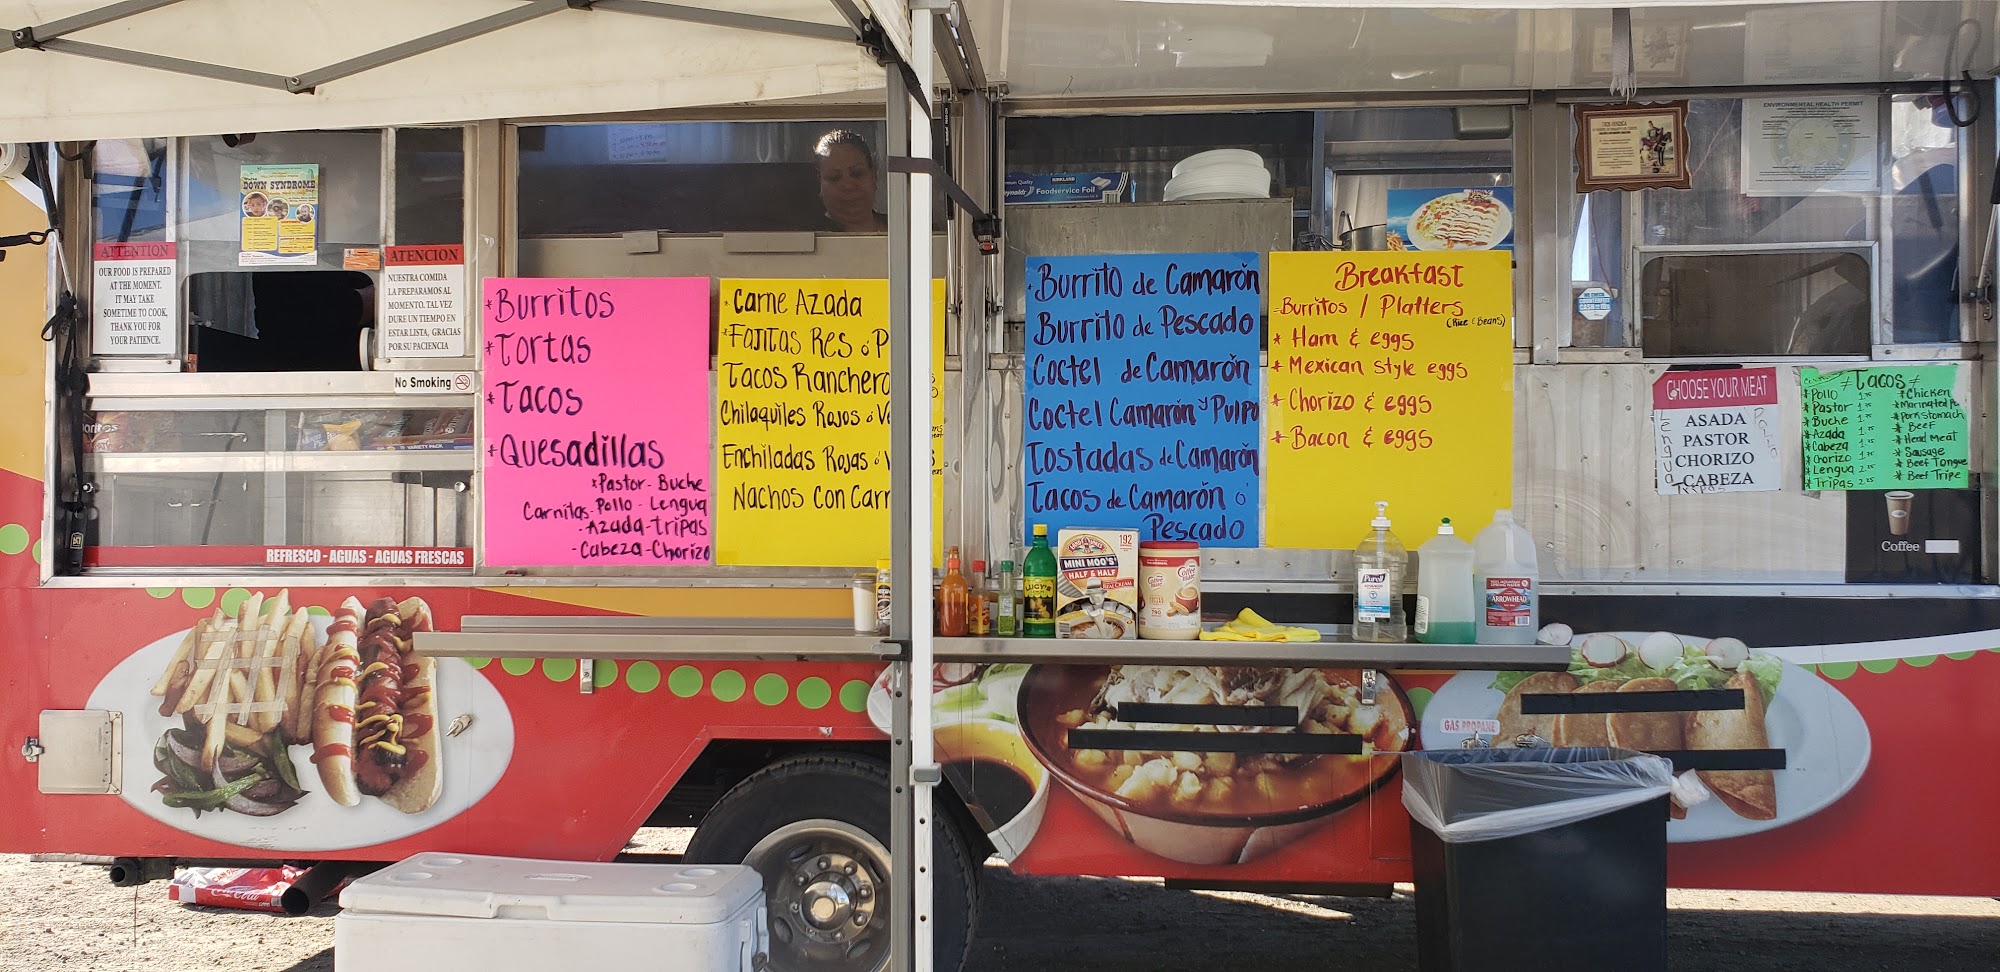 DOWN SYNDROME
ATTENTION
OUR FOOD IS PREPARED
AT THE MOMENT.
IT MAY TAKE
SOMETIME TO COOK,
THANK YOU FOR
YOUR PATIENCE.
ATENCION
NUESTRA COMIDA
LA PREPARAMOS AL
MOMENTO. TAL VEZ
DURE UN TIEMPO EN
ESTAR LISTA, GRACIAS
POR SU PACIENCIA
No Smoking
REFRESCO - AGUAS - AGUAS FRESCAS
* Burritos
* Tortas
* Tacos
* Quesadillas
* Pastor - Buche
Carnitas - Pollo - Lengua
- Azada - tripas
- Cabeza - Chorizo
* Carne Azada
* Fajitas Res ó P
Tacos Ranchero
Chilaquiles Rojos ó
Enchiladas Rojas ó
Nachos con Car
Quality
KIRKLAND
Reynolds Foodservice Foil
* Burrito de Camarón
Burrito de Pescado
Coctel de Camarón
Coctel Camarón y Pulpo
Tostadas de Camarón
Tacos de Camarón ó
Pescado
Breakfast
- Burritos / Platters
(Rice & Beans)
* Ham & eggs
* Mexican Style eggs
* Chorizo & eggs
* Bacon & eggs
ENVIRONMENTAL HEALTH PERMIT
CHOOSE YOUR MEAT
ASADA
PASTOR
CHORIZO
CABEZA
Lengua
Pollo
Tripas
Tacos
* Pollo 1.75
* Pastor 1.75
* Buche 1.75
* Azada 1.75
* Cabeza 1.75
* Chorizo 1.75
* Lengua 2.25
* Tripas 2.25
* Chicken
* Marinated
* Pork Stomach
* Beef
* Head Meat
* Sausage
* Beef Tongue
* Beef Tripe
Coffee
192
MINI MOO'S
HALF & HALF
Coffee mate
Purell
ARROWHEAD
GAS PROPANE
Coca-Cola